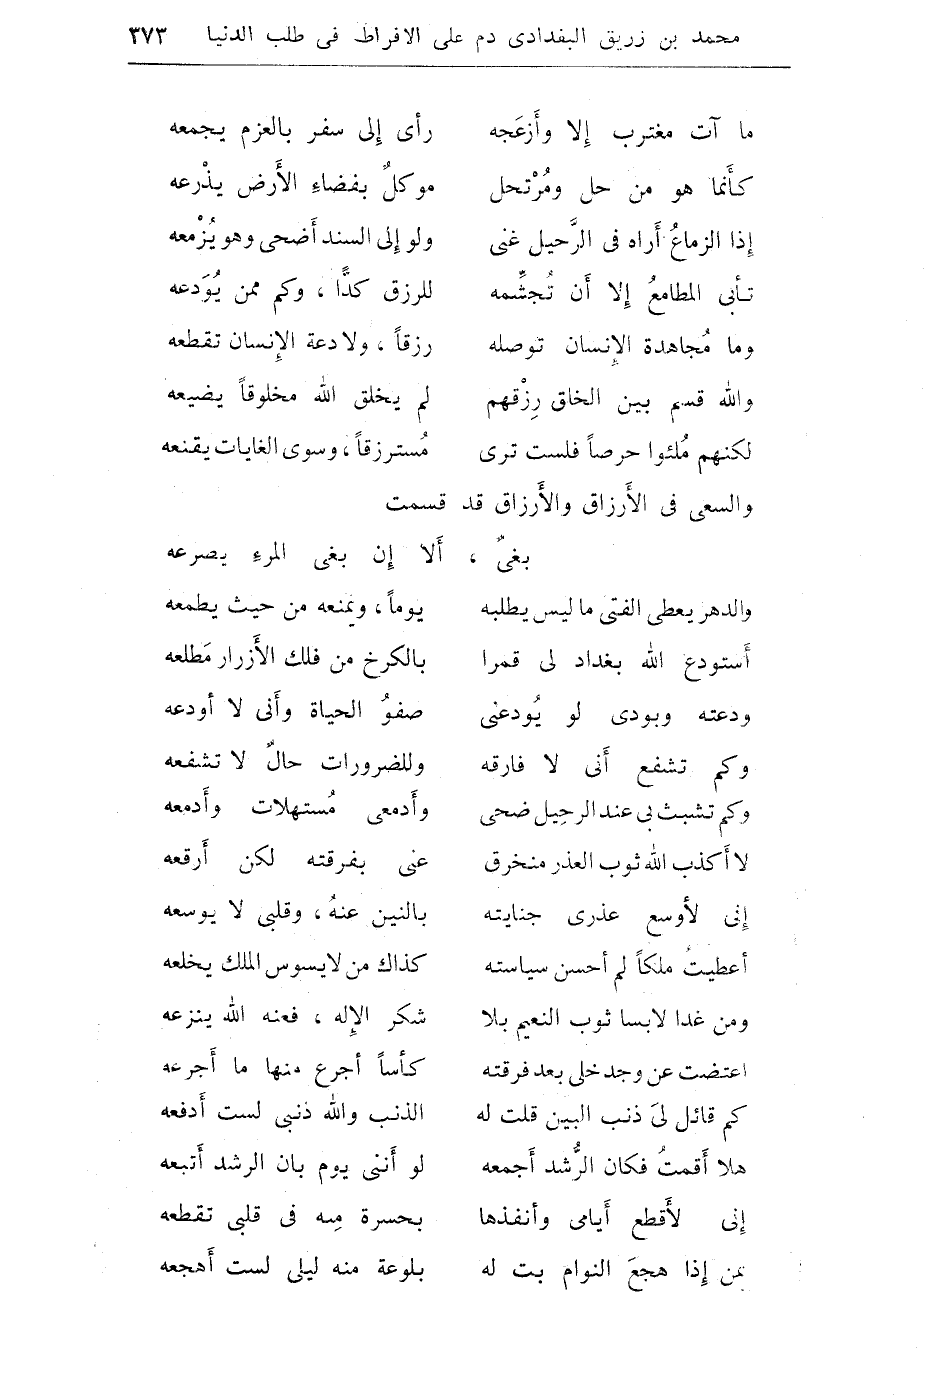 محمد بن زريق البغدادى دم على الافراط فى طلب الدنيا ٣٧٣
ما آت مغترب إلا وأزعَجه رأى إلى سفر بالعزم يجمعه
كأَنما هو من حل ومُرْتحل موكلٌ بفضاءِ الأَرض يذْرعه
إذا الزماعُ أَراه فى الرَّحيل غنى ولو إلى السند أَضحى وهو يُزْمعه
تأبى المطامعُ إلا أَن تُجشِّمه للرزق كدًّا ، وكم ممن يُوَدعه
وما مُجاهدة الإِنسان توصله رزقاً ، ولا دعة الإِنسان تقطعه
والله قسم بين الخاق رِزْقهم لم يخلق الله مخلوقاً يضيعه
لكنهم مُلئوا حرصاً فلست ترى مُسترزقاً ، وسوى الغايات يقنعه
والسعى فى الأَرزاق والأَرزاق قد قسمت
بغىٌ ، أَلا إن بغى المرء يصرعه
والدهر يعطى الفتى ما ليس يطلبه يوماً ، ويمنعه من حيث يطمعه
أَستودع الله بغداد لى قمرا بالكرخ من فلك الأَزرار مَطلعه
ودعته وبودى لو يُودعنى صفوُ الحياة وأَنى لا أودعه
وكم تشفع أَنى لا فارقه وللضرورات حالٌ لا تشفعه
وكم تشبث بى عند الرحيل ضحى وأَدمعى مُستهلات وأَدمعه
لا أَكذب الله ثوب العذر منخرق عنى بفرقته لكن أَرقعه
إنى لأوسع عذرى جنايته بالنين عنهُ ، وقلبى لا يوسعه
أعطيتُ ملكاً لم أحسن سياسته كذاك من لايسوس الملك يخلعه
ومن غدا لابسا ثوب النعيم بلا شكر الإِله ، فعنه الله ينزعه
اعتضت عن وجد خلى بعد فرقته كأساً أجرع منها ما أَجرعه
كم قائل لىَ ذنب البين قلت له الذنب والله ذنبى لست أَدفعه
هلا أَقمتُ فكان الرُّشد أَجمعه لو أَننى يوم بان الرشد أَتبعه
إنى لأَقطع أَيامى وأنفذها بحسرة منه فى قلبى تقطعه
بمن إذا هجعَ النوام بت له بلوعة منه ليلى لست أهجعه